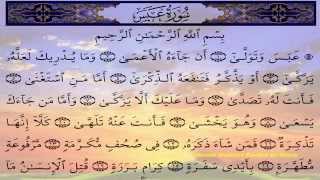 سُورَةُ عَبَسَ
بِسْمِ اللَّهِ الرَّحْمَٰنِ الرَّحِيمِ
عَبَسَ وَتَوَلَّىٰ ۝ أَن جَاءَهُ الْأَعْمَىٰ ۝ وَمَا يُدْرِيكَ لَعَلَّهُ
يَزَّكَّىٰ ۝ أَوْ يَذَّكَّرُ فَتَنفَعَهُ الذِّكْرَىٰ ۝ أَمَّا مَنِ اسْتَغْنَىٰ ۝
فَأَنتَ لَهُ تَصَدَّىٰ ۝ وَمَا عَلَيْكَ أَلَّا يَزَّكَّىٰ ۝ وَأَمَّا مَن جَاءَكَ
يَسْعَىٰ ۝ وَهُوَ يَخْشَىٰ ۝ فَأَنتَ عَنْهُ تَلَهَّىٰ ۝ كَلَّا إِنَّهَا
تَذْكِرَةٌ ۝ فَمَن شَاءَ ذَكَرَهُ ۝ فِي صُحُفٍ مُّكَرَّمَةٍ ۝ مَّرْفُوعَةٍ
مُّطَهَّرَةٍ ۝ بِأَيْدِي سَفَرَةٍ ۝ كِرَامٍ بَرَرَةٍ ۝ قُتِلَ الْإِنسَانُ مَا